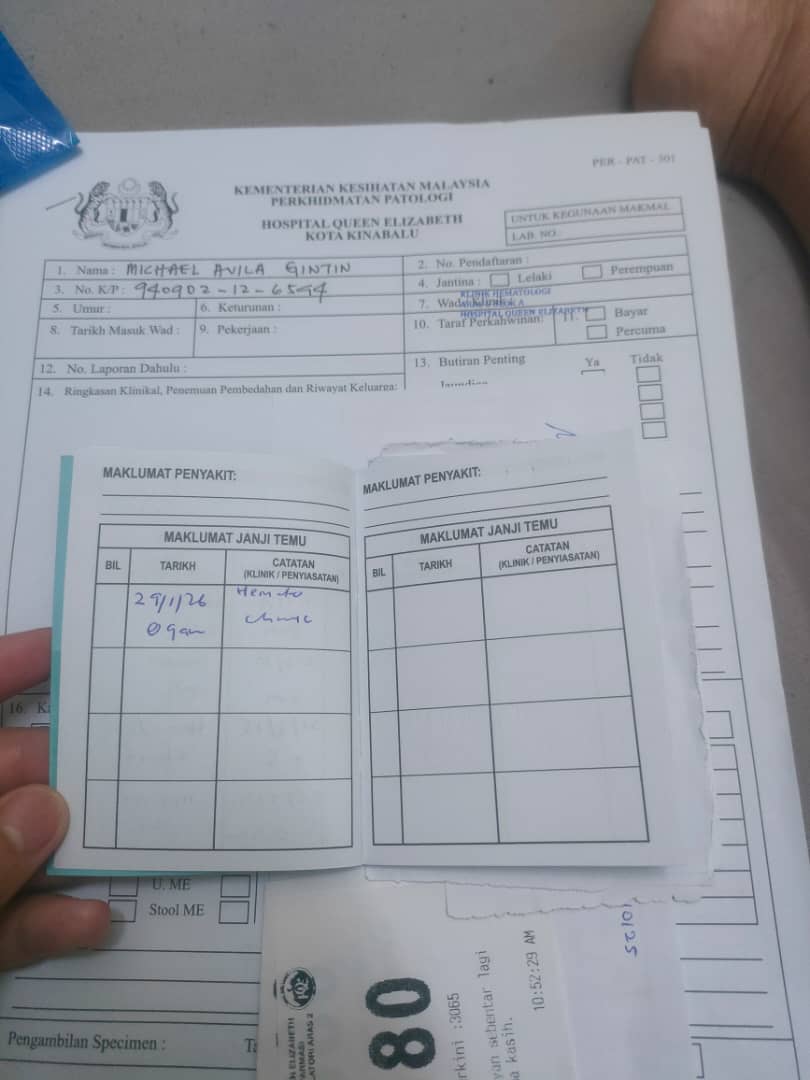 PER - PAT - 301
KEMENTERIAN KESIHATAN MALAYSIA
PERKHIDMATAN PATOLOGI
HOSPITAL QUEEN ELIZABETH
KOTA KINABALU
UNTUK KEGUNAAN MAKMAL
LAB. NO.:
1. Nama : MICHAEL AVILA GINTIN
2. No. Pendaftaran :
3. No. K/P : 940902-12-6594
4. Jantina : Lelaki Perempuan
5. Umur :
6. Keturunan :
7. Wad
KLINIK HEMATOLOGI
HOSPITAL QUEEN ELIZABETH
8. Tarikh Masuk Wad :
9. Pekerjaan :
10. Taraf Perkahwinan:
11. Bayar
Percuma
12. No. Laporan Dahulu :
13. Butiran Penting Ya Tidak
14. Ringkasan Klinikal, Penemuan Pembedahan dan Riwayat Keluarga:
MAKLUMAT PENYAKIT:
MAKLUMAT JANJI TEMU
BIL TARIKH CATATAN
(KLINIK / PENYIASATAN)
29/1/26 Hemato
clinic
MAKLUMAT PENYAKIT:
MAKLUMAT JANJI TEMU
BIL TARIKH CATATAN
(KLINIK / PENYIASATAN)
16.
U. ME
Stool ME
Pengambilan Specimen :
80
rkini :3065
sebentar lagi
kasih.
10:52:29 AM
10/25